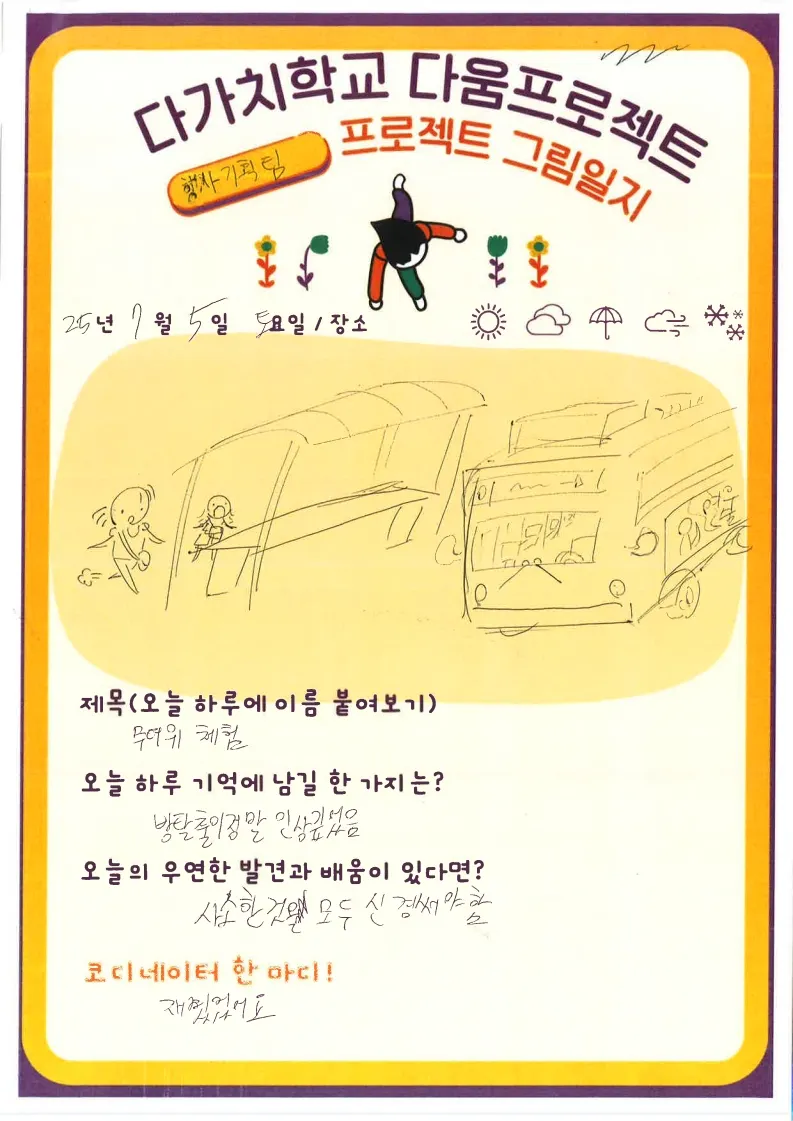 다가치학교 다움프로젝트
프로젝트 그림일지
행사기획팀
25년 7월 5일 토요일 / 장소
제목(오늘 하루에 이름 붙여보기)
무더위 체험
오늘 하루 기억에 남길 한 가지는?
방탈출이정말 인상깊었음
오늘의 우연한 발견과 배움이 있다면?
사소한것 모두 신경써야함
코디네이터 한 마디!
재밌었어요